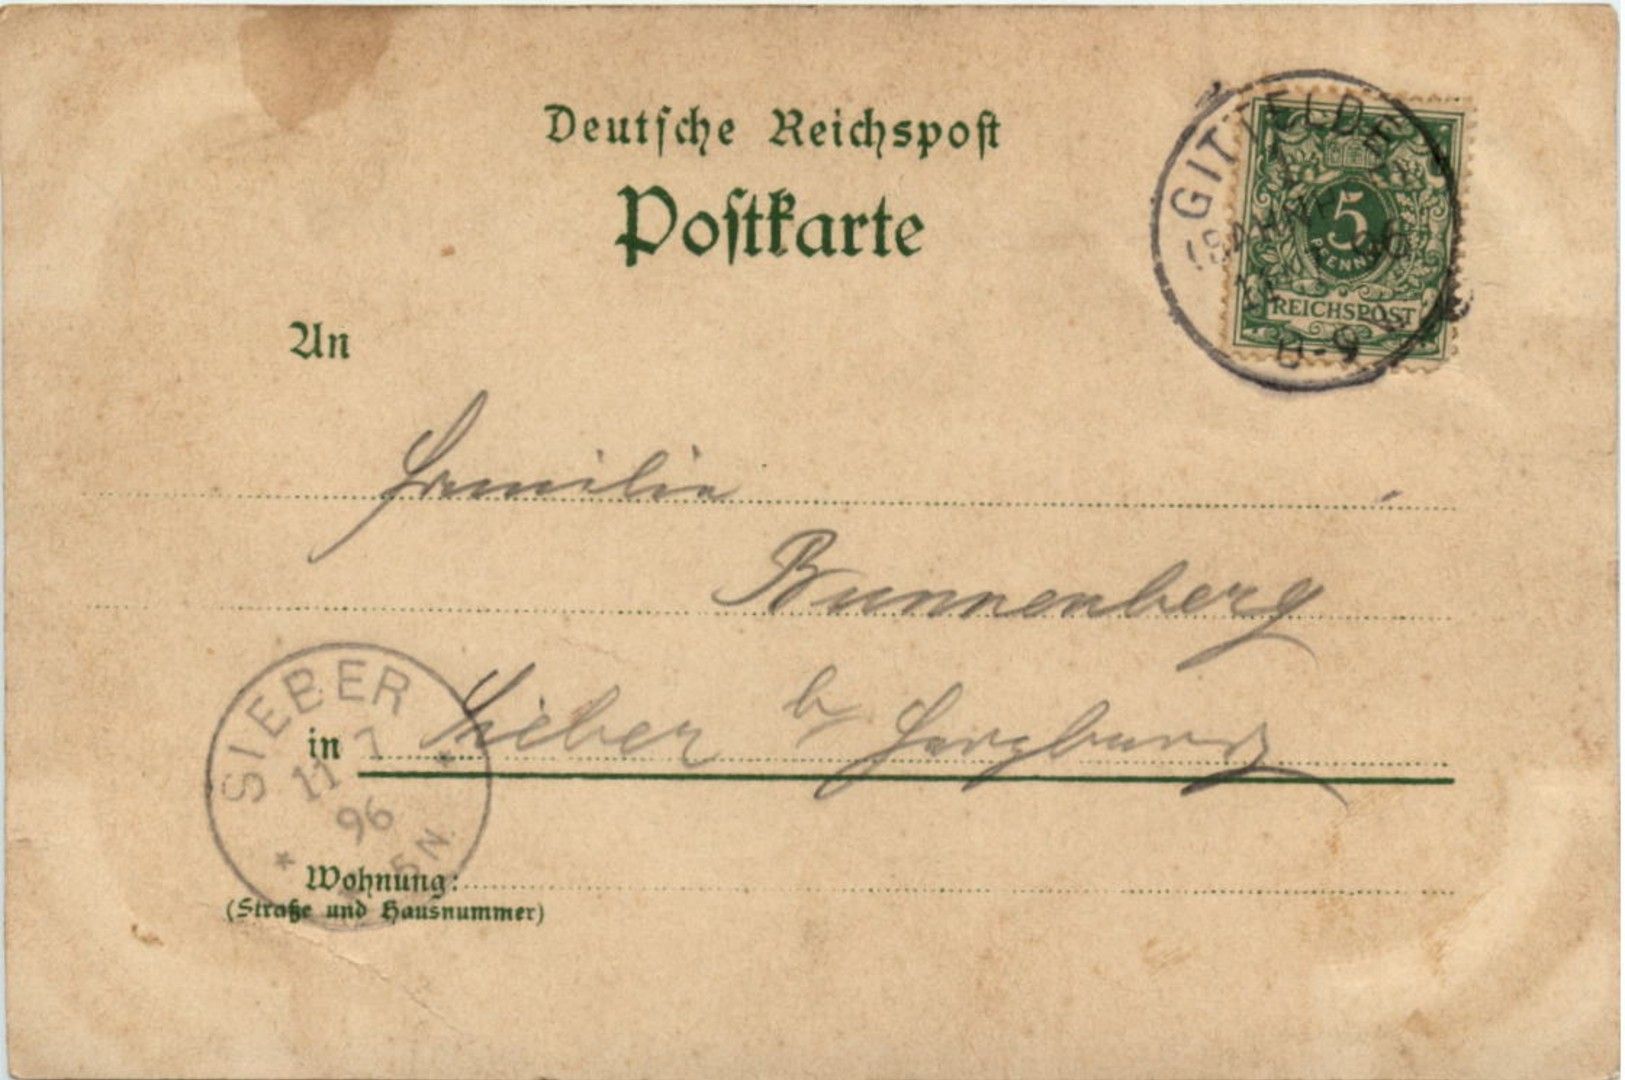 Deutsche Reichspost
Postkarte
GITTELDE
(BAHNHF
96
8-9
5
PFENNIG
REICHSPOST
An
Familie
Bunnenberg
in Sieber b/ Herzberg
SIEBER
11 7
96
5 N.
Wohnung:
(Straße und Hausnummer)